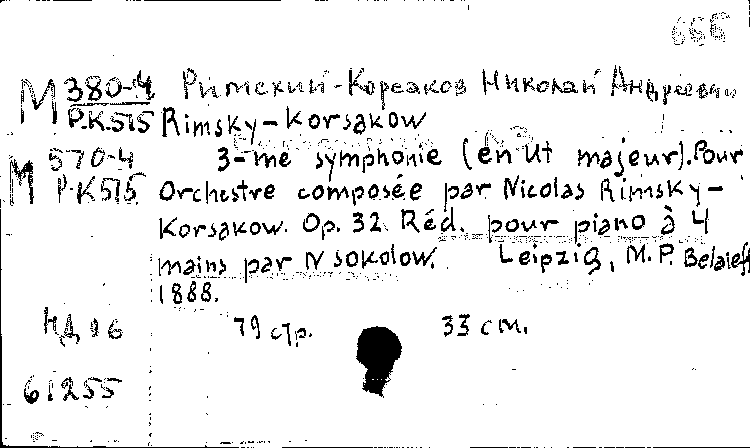 М 380-4 Римский-Корсаков Николай Андреевич
Р.К.515 Rimsky-Korsakow
М 570-4 3-me symphonie (en Ut majeur). Pour
Р.К515 Orchestre composée par Nicolas Rimsky-
Korsakow. Op. 32. Réd. pour piano à 4
mains par N Sokolow. Leipzig, M.P. Belaieff
1888.
79 стр. 33 см.
61255